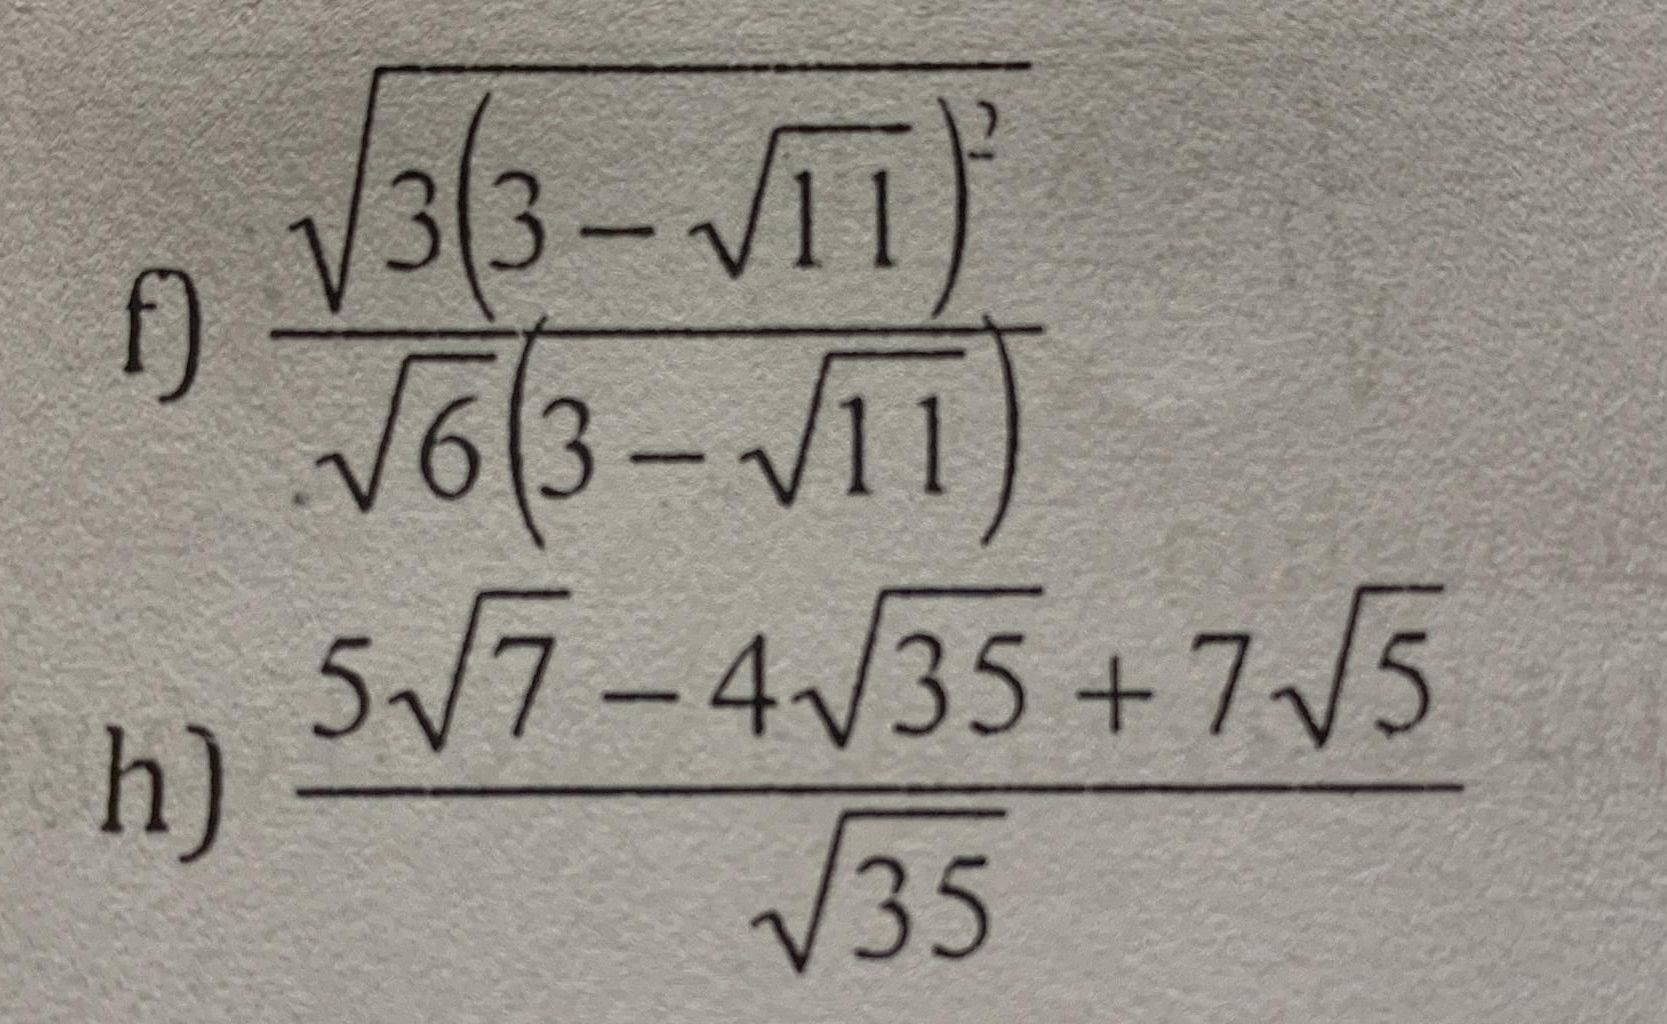 f) \frac{\sqrt{3(3-\sqrt{11})^2}}{\sqrt{6}(3-\sqrt{11})}
h) \frac{5\sqrt{7}-4\sqrt{35}+7\sqrt{5}}{\sqrt{35}}